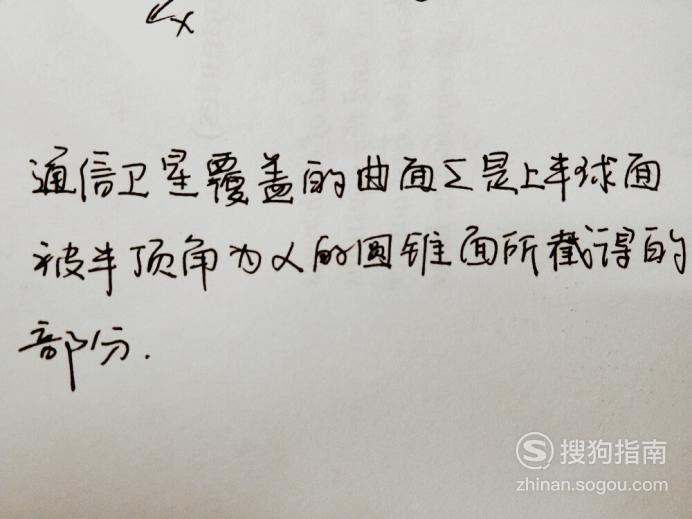 x
通信卫星覆盖的曲面Σ是上半球面
被半顶角为α的圆锥面所截得的
部分.
搜狗指南
zhinan.sogou.com